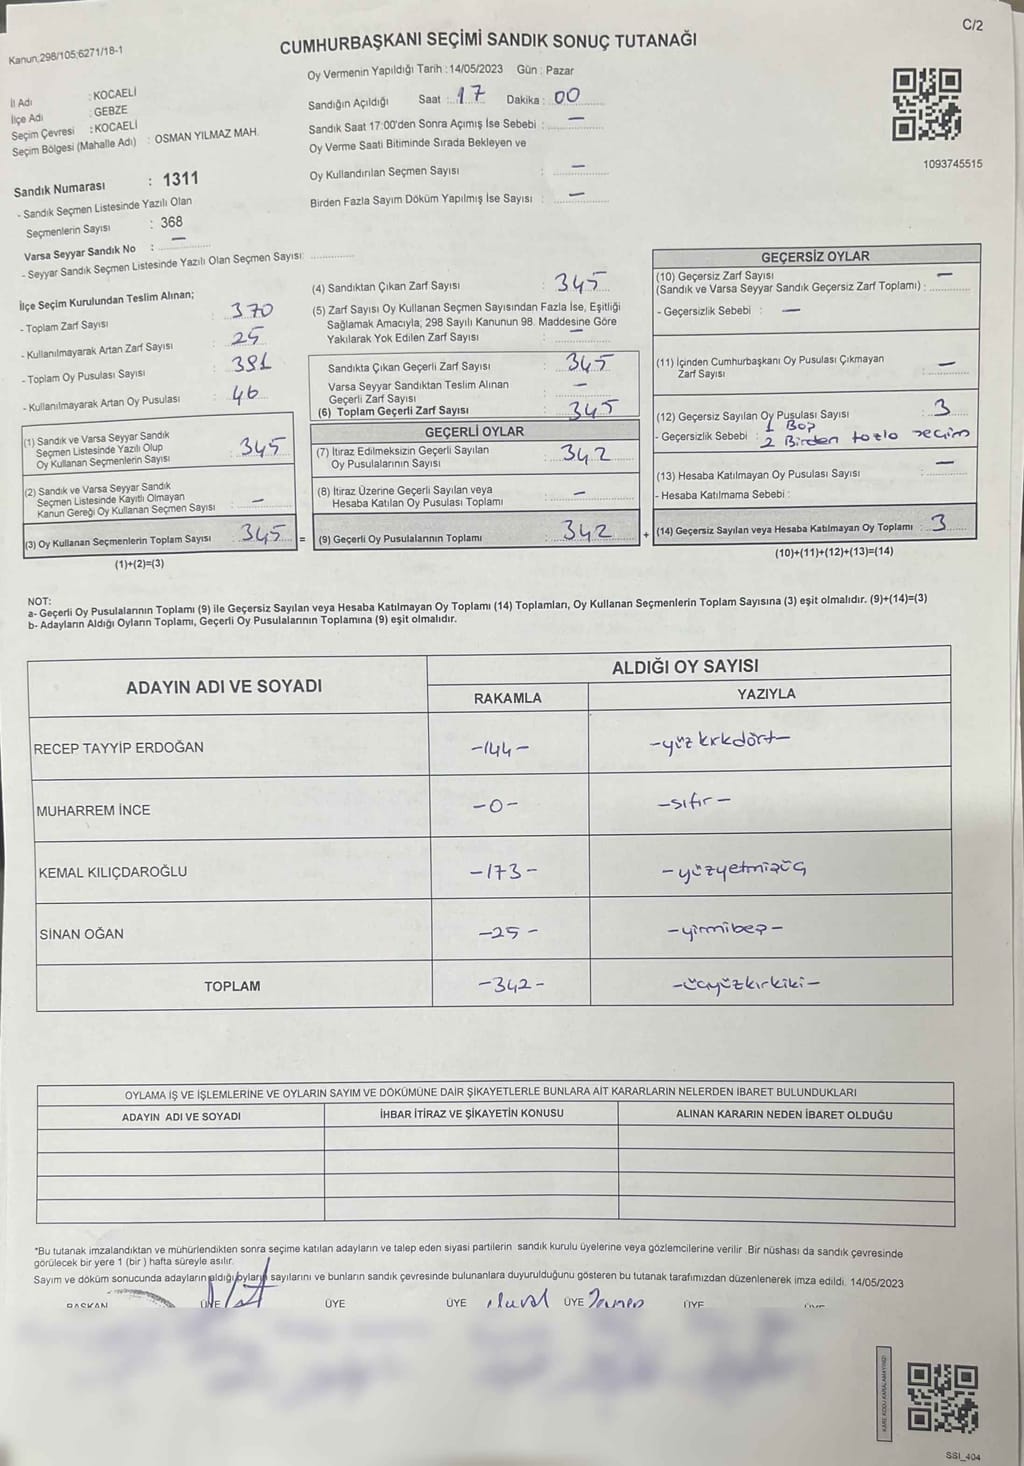 C/2
Kanun.298/105;6271/18-1
CUMHURBAŞKANI SEÇİMİ SANDIK SONUÇ TUTANAĞI
Oy Vermenin Yapıldığı Tarih : 14/05/2023 Gün : Pazar
İl Adı : KOCAELİ
İlçe Adı : GEBZE
Seçim Çevresi : KOCAELİ
Seçim Bölgesi (Mahalle Adı) : OSMAN YILMAZ MAH.
Sandığın Açıldığı Saat : 17 Dakika : 00
Sandık Saat 17:00'den Sonra Açımış İse Sebebi : —
Oy Verme Saati Bitiminde Sırada Bekleyen ve
Oy Kullandırılan Seçmen Sayısı : —
Birden Fazla Sayım Döküm Yapılmış İse Sayısı : —
1093745515
Sandık Numarası : 1311
- Sandık Seçmen Listesinde Yazılı Olan
Seçmenlerin Sayısı : 368
Varsa Seyyar Sandık No : —
- Seyyar Sandık Seçmen Listesinde Yazılı Olan Seçmen Sayısı:
İlçe Seçim Kurulundan Teslim Alınan;
- Toplam Zarf Sayısı : 370
- Kullanılmayarak Artan Zarf Sayısı : 25
- Toplam Oy Pusulası Sayısı : 391
- Kullanılmayarak Artan Oy Pusulası : 46
(1) Sandık ve Varsa Seyyar Sandık
Seçmen Listesinde Yazılı Olup
Oy Kullanan Seçmenlerin Sayısı : 345
(2) Sandık ve Varsa Seyyar Sandık
Seçmen Listesinde Kayıtlı Olmayan
Kanun Gereği Oy Kullanan Seçmen Sayısı : —
(3) Oy Kullanan Seçmenlerin Toplam Sayısı : 345 =
(1)+(2)=(3)
(4) Sandıktan Çıkan Zarf Sayısı : 345
(5) Zarf Sayısı Oy Kullanan Seçmen Sayısından Fazla İse, Eşitliği
Sağlamak Amacıyla, 298 Sayılı Kanunun 98. Maddesine Göre
Yakılarak Yok Edilen Zarf Sayısı : —
Sandıkta Çıkan Geçerli Zarf Sayısı : 345
Varsa Seyyar Sandıktan Teslim Alınan
Geçerli Zarf Sayısı : —
(6) Toplam Geçerli Zarf Sayısı : 345
GEÇERLİ OYLAR
(7) İtiraz Edilmeksizin Geçerli Sayılan
Oy Pusulalarının Sayısı : 342
(8) İtiraz Üzerine Geçerli Sayılan veya
Hesaba Katılan Oy Pusulası Toplamı : —
(9) Geçerli Oy Pusulalarının Toplamı : 342 +
GEÇERSİZ OYLAR
(10) Geçersiz Zarf Sayısı —
(Sandık ve Varsa Seyyar Sandık Geçersiz Zarf Toplamı) :
- Geçersizlik Sebebi : —
(11) İçinden Cumhurbaşkanı Oy Pusulası Çıkmayan
Zarf Sayısı : —
(12) Geçersiz Sayılan Oy Pusulası Sayısı : 3
1 Boş
- Geçersizlik Sebebi : 2 Birden fazla seçim
(13) Hesaba Katılmayan Oy Pusulası Sayısı : —
- Hesaba Katılmama Sebebi :
(14) Geçersiz Sayılan veya Hesaba Katılmayan Oy Toplamı : 3
(10)+(11)+(12)+(13)=(14)
NOT:
a- Geçerli Oy Pusulalarının Toplamı (9) ile Geçersiz Sayılan veya Hesaba Katılmayan Oy Toplamı (14) Toplamları, Oy Kullanan Seçmenlerin Toplam Sayısına (3) eşit olmalıdır. (9)+(14)=(3)
b- Adayların Aldığı Oyların Toplamı, Geçerli Oy Pusulalarının Toplamına (9) eşit olmalıdır.
ADAYIN ADI VE SOYADI ALDIĞI OY SAYISI
RAKAMLA YAZIYLA
RECEP TAYYİP ERDOĞAN -144- -yüz kırkdört-
MUHARREM İNCE -0- -sıfır-
KEMAL KILIÇDAROĞLU -173- -yüzyetmişüç
SİNAN OĞAN -25- -yirmibeş-
TOPLAM -342- -üçyüzkırkiki-
OYLAMA İŞ VE İŞLEMLERİNE VE OYLARIN SAYIM VE DÖKÜMÜNE DAİR ŞİKAYETLERLE BUNLARA AİT KARARLARIN NELERDEN İBARET BULUNDUKLARI
ADAYIN ADI VE SOYADI İHBAR İTİRAZ VE ŞİKAYETİN KONUSU ALINAN KARARIN NEDEN İBARET OLDUĞU
*Bu tutanak imzalandıktan ve mühürlendikten sonra seçime katılan adayların ve talep eden siyasi partilerin sandık kurulu üyelerine veya gözlemcilerine verilir .Bir nüshası da sandık çevresinde
görülecek bir yere 1 (bir ) hafta süreyle asılır.
Sayım ve döküm sonucunda adayların aldığı oyların sayılarını ve bunların sandık çevresinde bulunanlara duyurulduğunu gösteren bu tutanak tarafımızdan düzenlenerek imza edildi. 14/05/2023
BAŞKAN ÜYE ÜYE ÜYE ÜYE ÜYE ÜYE
SSI_404